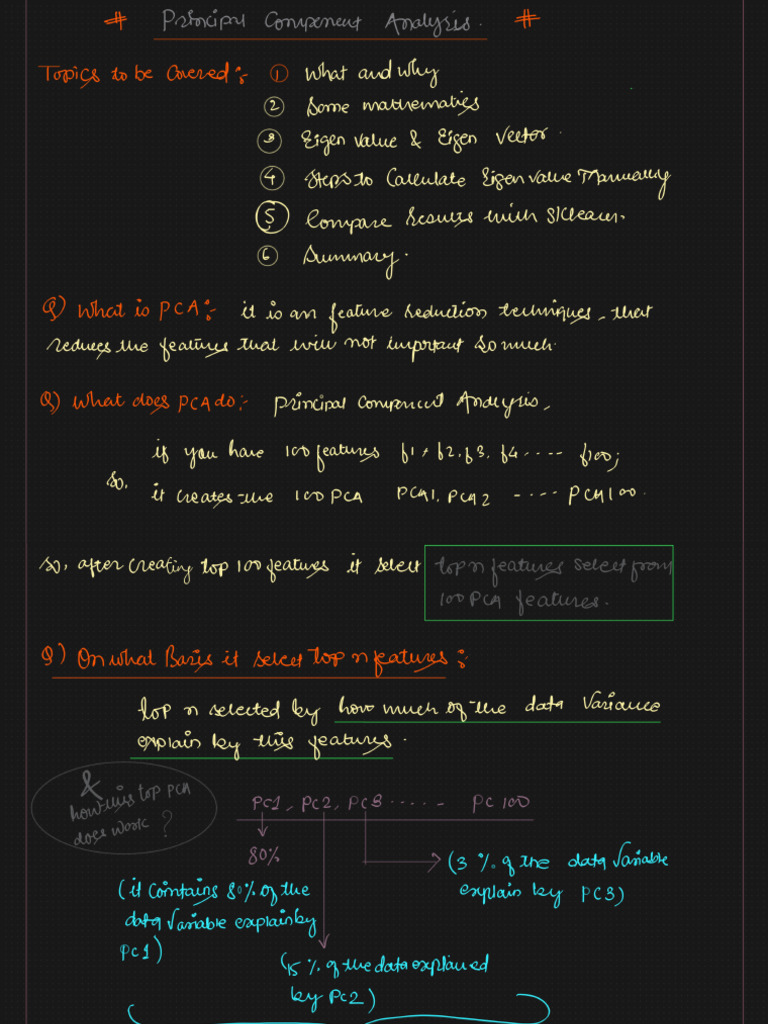 # Principal Component Analysis. #
Topics to be Covered:- ① What and Why
② Some mathematics
③ Eigen value & Eigen Vector.
④ Steps to Calculate Eigen value Manually
⑤ Compare Results with Sklearn.
⑥ Summary.
Q) What is PCA:- it is an feature reduction techniques, that
reduces the features that will not important so much.
Q) What does PCA do:- Principal Component Analysis,
if you have 100 features f1, f2, f3, f4 ..... f100;
so, it creates the 100 PCA PCA1, PCA2 ---- PCA100.
so, after creating top 100 features it select top n features select from
100 PCA features.
Q) On what Basis it select top n features:-
top n selected by how much of the data Variance
explain by this features.
& how this top PCA
does work?
PC1, PC2, PC3 ...... PC100
80%
(3 % of the data Variable
explain by PC3)
(it contains 80% of the
data Variable explain by
PC1)
(15 % of the data explained
by PC2)